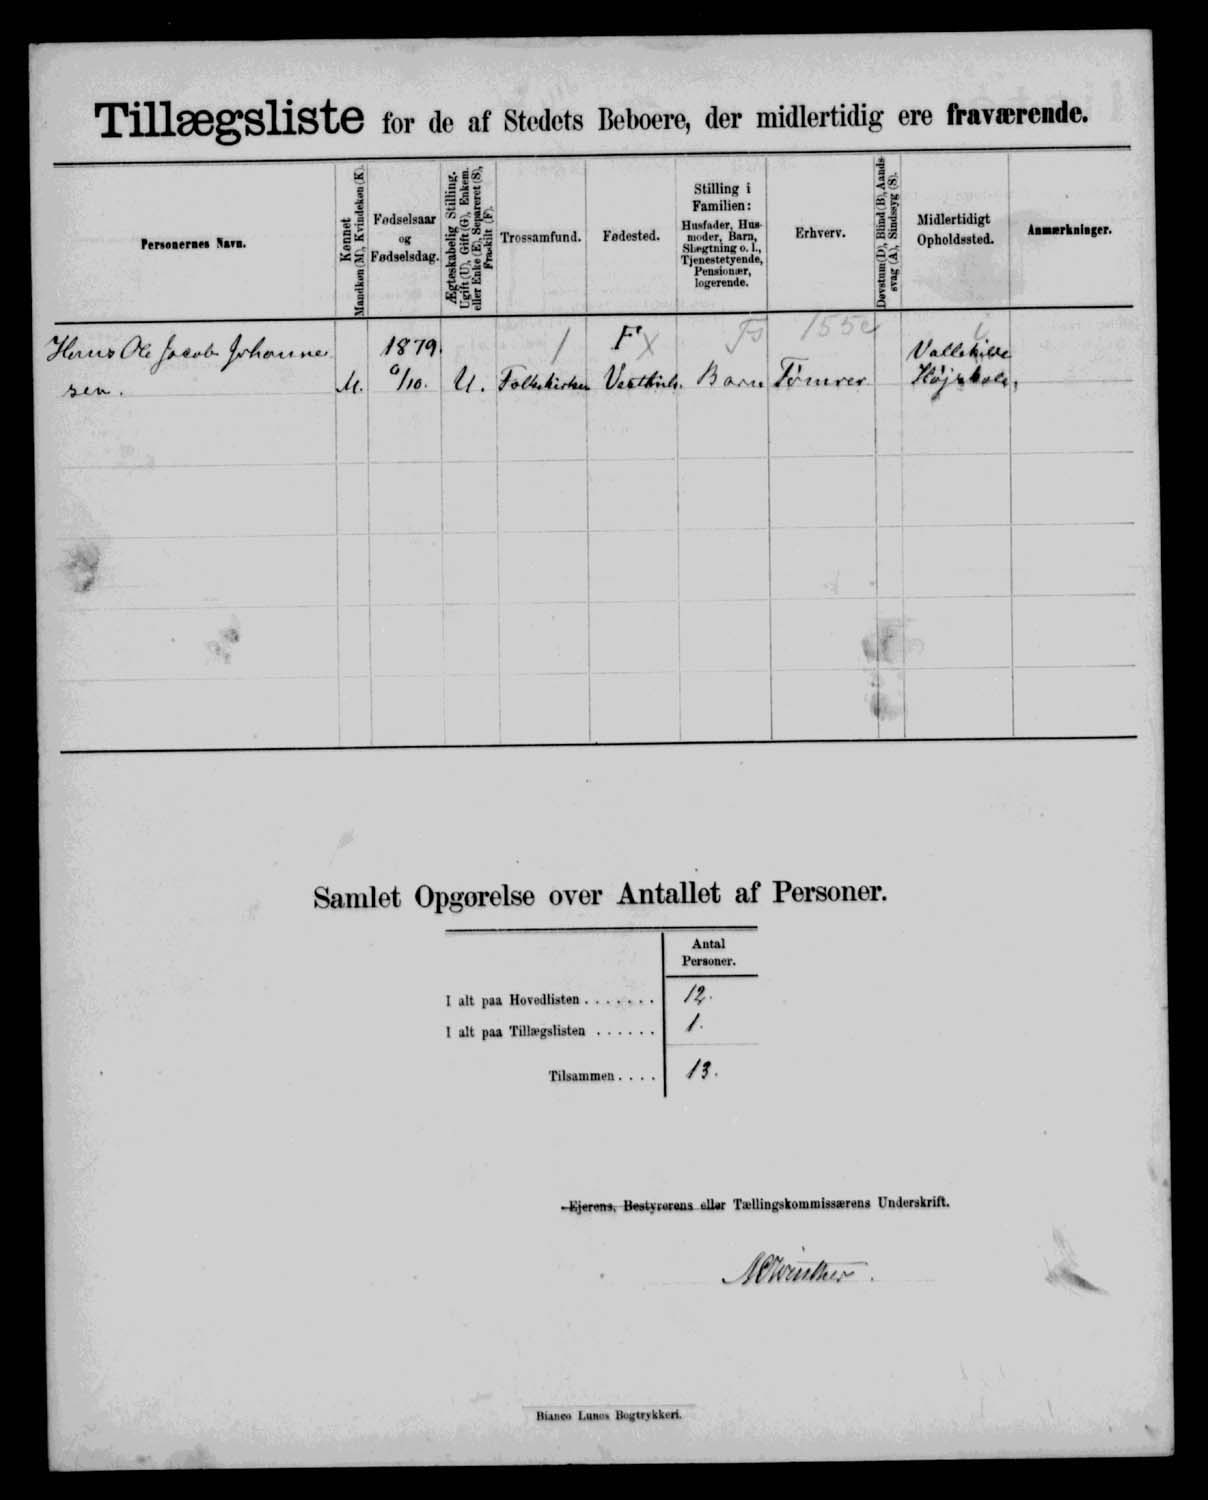 Tillægsliste for de af Stedets Beboere, der midlertidig ere fraværende.
Personernes Navn.
Kønnet
Mandkøn (M), Kvindekøn (K).
Fødselsaar
og
Fødselsdag.
Ægteskabelig Stilling.
Ugift (U), Gift (G), Enkem.
eller Enke (E), Separeret (S),
Fraskilt (F).
Trossamfund.
Fødested.
Stilling i
Familien:
Husfader, Hus-
moder, Barn,
Slægtning o. l.,
Tjenestetyende,
Pensionær,
logerende.
Erhverv.
Døvstum (D), Blind (B), Aands-
svag (A), Sindssyg (S).
Midlertidigt
Opholdssted.
Anmærkninger.
Hans Ole Jacob Johanne
sen.
M.
1879.
6/10.
U.
1
Folkekirken
F X
Fs
Barn
155c
Tømrer
Vallekilde
Højskole,
Samlet Opgørelse over Antallet af Personer.
Antal
Personer.
I alt paa Hovedlisten . . . . . . . 12.
I alt paa Tillægslisten . . . . . . 1.
Tilsammen . . . . 13.
Ejerens, Bestyrerens eller Tællingskommissærens Underskrift.
Winther.
Bianco Lunos Bogtrykkeri.